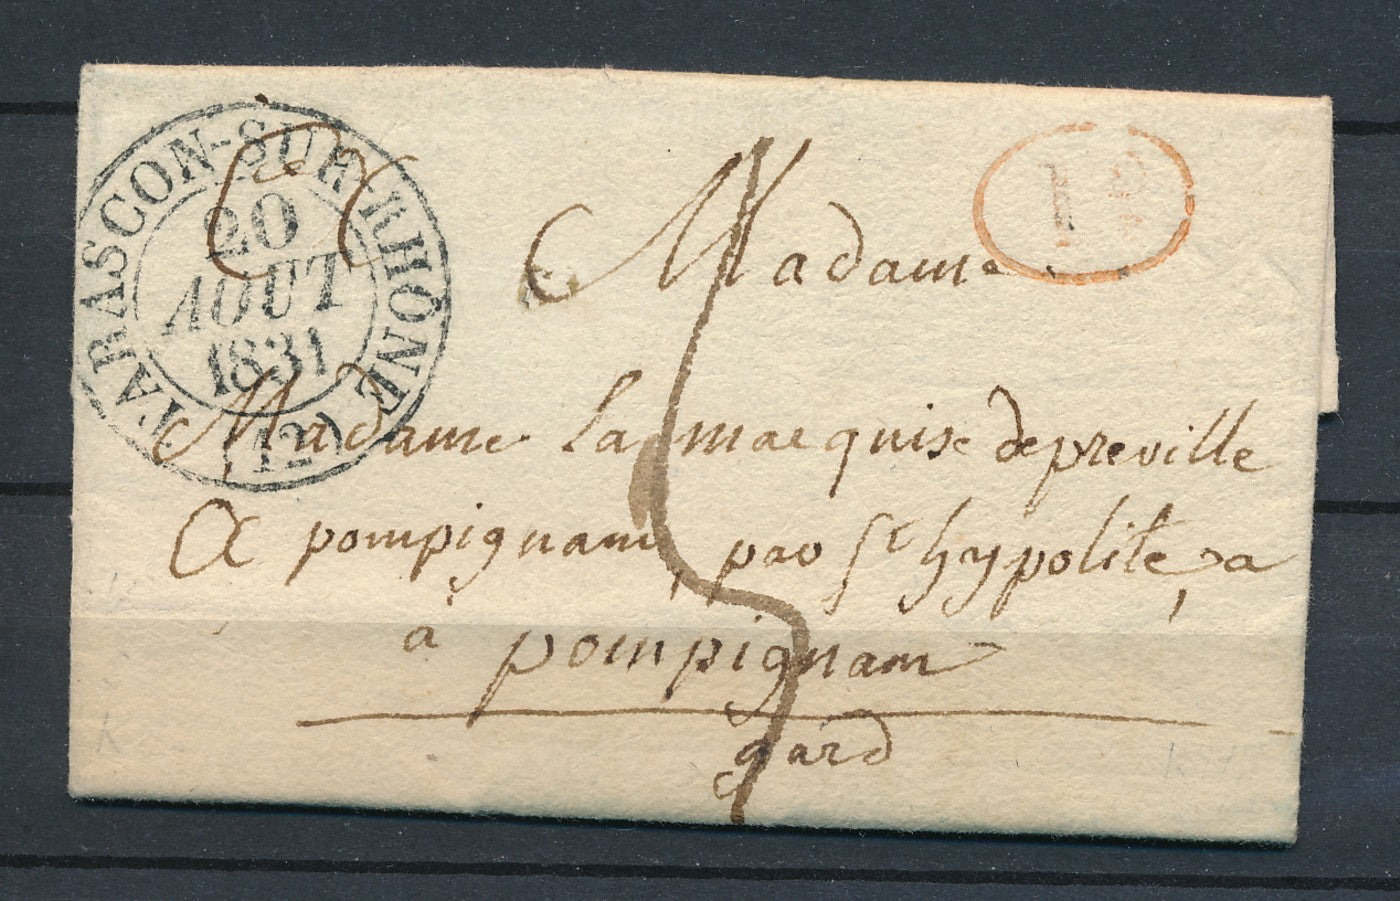 TARASCON-SUR-RHÔNE (12)
20
AOUT
1831
1D
Madame
Madame la marquise de preville
A pompignam, par St hypolite, a
à pompignam
gard